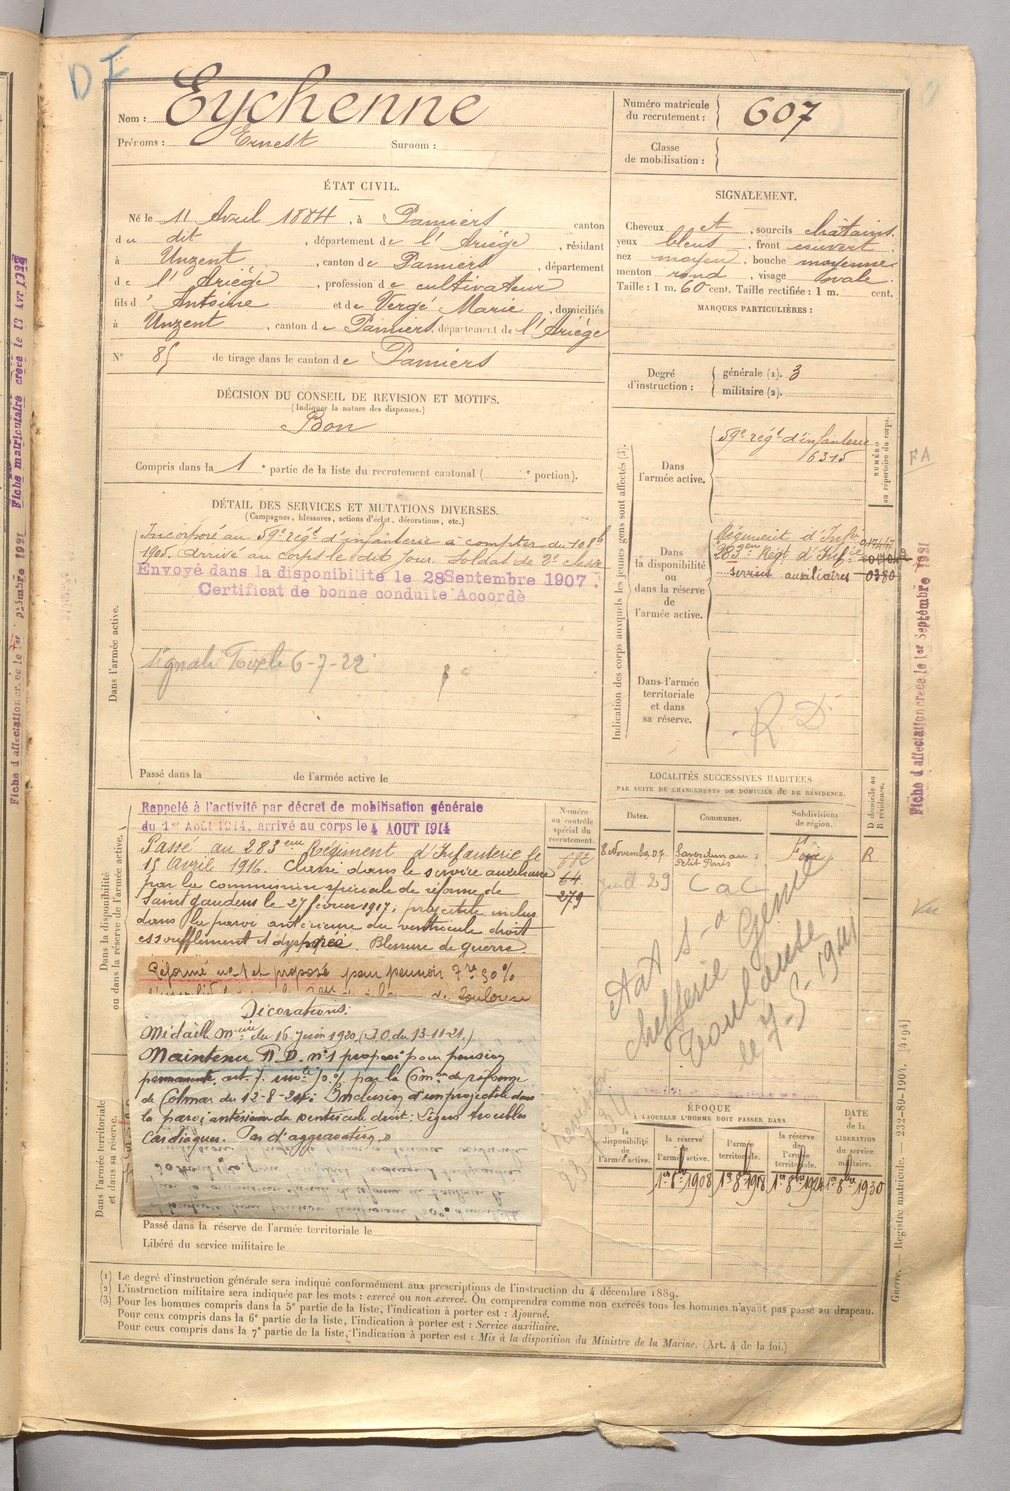 DF
Nom : Eychenne
Prénoms : Ernest Surnom :
Numéro matricule du recrutement : 607
Classe de mobilisation :
ÉTAT CIVIL.
Né le 11 Avril 1884, à Pamiers canton
du dit, département de l'Ariège, résidant
à Unzent, canton de Pamiers, département
de l'Ariège, profession de cultivateur
fils d'Antoine et de Vergé Marie, domiciliés
à Unzent, canton de Pamiers, département de l'Ariège
N° 85 de tirage dans le canton de Pamiers
SIGNALEMENT.
Cheveux et, sourcils châtains.
yeux bleus, front couvert.
nez moyen, bouche moyenne
menton rond, visage ovale.
Taille : 1 m. 60 cent. Taille rectifiée : 1 m. cent.
MARQUES PARTICULIÈRES :
Degré d'instruction : générale (1). 3
militaire (2).
DÉCISION DU CONSEIL DE REVISION ET MOTIFS.
(Indiquer la nature des dispenses.)
Bon
Compris dans la 1e partie de la liste du recrutement cantonal ( e portion).
DÉTAIL DES SERVICES ET MUTATIONS DIVERSES.
(Campagnes, blessures, actions d'éclat, décorations, etc.)
Dans l'armée active.
Incorporé au 59e régt d'infanterie à compter du 10 8b
1905. Arrivé au Corps le dit jour. Soldat de 2e classe
Envoyé dans la disponibilité le 28 Septembre 1907.
Certificat de bonne conduite Accordé
6-7-22
Passé dans la de l'armée active le
Indication des corps auxquels les jeunes gens sont affectés (3).
NUMÉRO au répertoire du corps.
Dans l'armée active.
59e régt d'infanterie
6315
Dans la disponibilité ou dans la réserve de l'armée active.
Régiment d'Infie
283eme Régt d'Infie
services auxiliaires 0380
Dans l'armée territoriale et dans sa réserve.
R. D.
FA
Fiche d'affectation créée le 1er Septembre 1921
LOCALITÉS SUCCESSIVES HABITÉES
PAR SUITE DE CHANGEMENTS DE DOMICILE OU DE RÉSIDENCE.
Dates. Communes. Subdivisions de région. D. domicile ou R. résidence.
8 Novembre 07 Saverdun au Petit Paris Foix R.
29 CaC
Toulouse
le 7-5-1941
Vu
Dans la disponibilité ou dans la réserve de l'armée active.
Numéro au contrôle spécial du recrutement.
64
279
Rappelé à l'activité par décret de mobilisation générale
du 1er Août 1914, arrivé au corps le 4 AOUT 1914
Passé au 283eme Régiment d'Infanterie le
15 Avril 1916. Classé dans le service auxiliaire
par la commission spéciale de réforme de
Saint Gaudens le 27 février 1917; projectile inclus
dans la paroi antérieure du ventricule droit
essoufflement et dyspnée. Blessure de guerre
Réformé n° 1 et proposé pour pension 50%
de Toulouse
Décorations.
Médaille Mre du 16 Juin 1920 (J.O. du 13-11-21.)
Maintenu R.D. n°1 proposé pour pension
permanente, art. 7. par la Comon de réforme
de Colmar du 12-8-24: Inclusion d'un projectile dans
la paroi antérieure du ventricule droit. Légers troubles
cardiaques. Pas d'aggravation.
Dans l'armée territoriale et dans sa réserve.
Passé dans la réserve de l'armée territoriale le
Libéré du service militaire le
ÉPOQUE
À LAQUELLE L'HOMME DOIT PASSER DANS
DATE de la LIBÉRATION du service militaire.
la disponibilité de l'armée active. la réserve de l'armée active. l'armée territoriale. la réserve de l'armée territoriale.
1er 8bre 1908 1er 8bre 1918 1er 8bre 1924 1er 8bre 1930
(1) Le degré d'instruction générale sera indiqué conformément aux prescriptions de l'instruction du 4 décembre 1889.
(2) L'instruction militaire sera indiquée par les mots : exercé ou non exercé. On comprendra comme non exercés tous les hommes n'ayant pas passé au drapeau.
(3) Pour les hommes compris dans la 5e partie de la liste, l'indication à porter est : Ajourné.
Pour ceux compris dans la 6e partie de la liste, l'indication à porter est : Service auxiliaire.
Pour ceux compris dans la 7e partie de la liste, l'indication à porter est : Mis à la disposition du Ministre de la Marine. (Art. 4 de la loi.)
Guerre. — Registre matricule. — 232-89-1904. [4194]